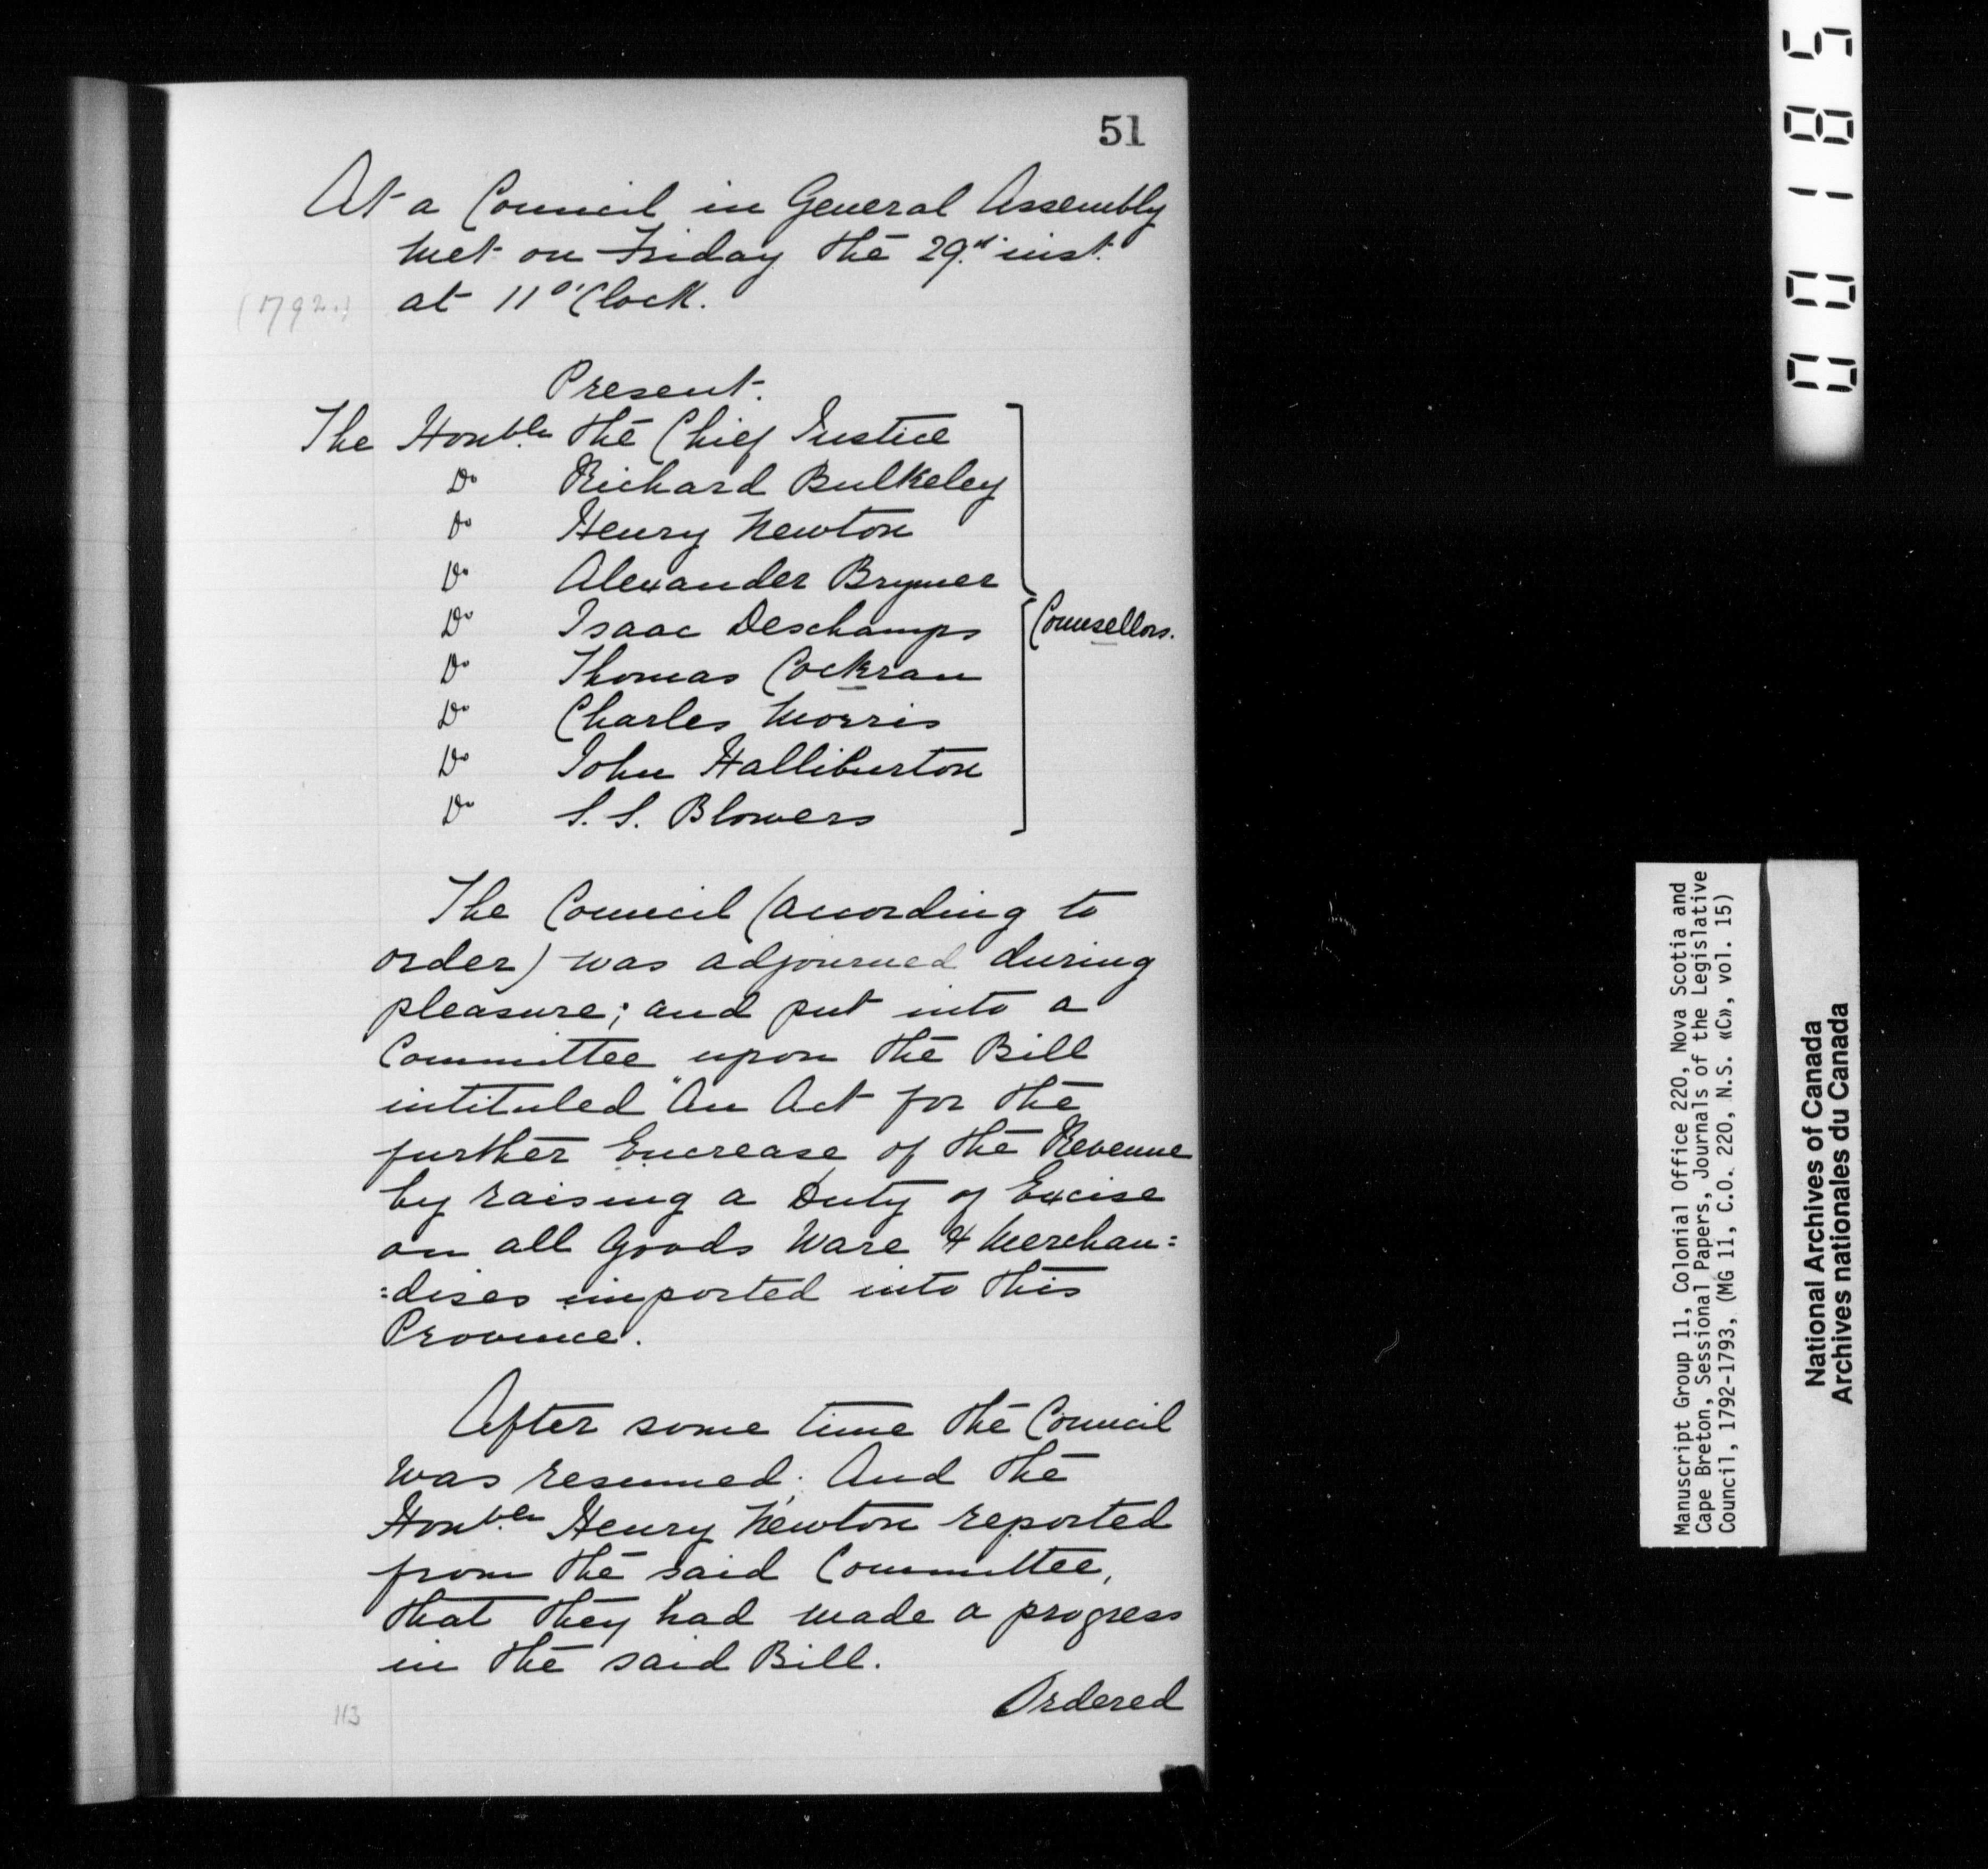 51
At a Council in General Assembly
met on Friday the 29.th inst.
(1792.)
at 11 o'Clock.
Present.
The Honble. the Chief Justice
Do Richard Bulkeley
Do Henry Newton
Do Alexander Brymer
Do Isaac Deschamps
Do Thomas Cockran
Do Charles Morris
Do John Halliburton
Do S. S. Blowers
Counsellors.
The Council (according to
order) was adjourned during
pleasure; and put into a
Committee upon the Bill
intituled "An Act for the
further Encrease of the Revenue
by raising a Duty of Excise
on all Goods Ware & Merchan=
=dises imported into this
Province.
After some time the Council
was resumed. And the
Honble. Henry Newton reported
from the said Committee,
that they had made a progress
in the said Bill.
Ordered
113
00185
Manuscript Group 11, Colonial Office 220, Nova Scotia and
Cape Breton, Sessional Papers, Journals of the Legislative
Council, 1792-1793, (MG 11, C.O. 220, N.S. «C», vol. 15)
National Archives of Canada
Archives nationales du Canada